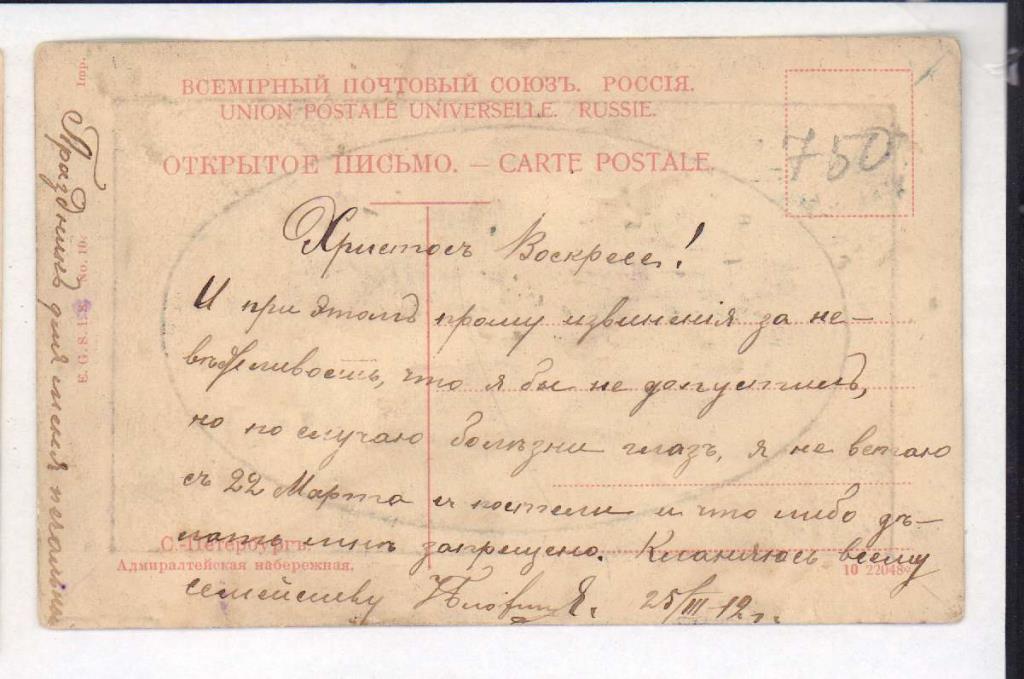 ВСЕМІРНЫЙ ПОЧТОВЫЙ СОЮЗЪ. РОССІЯ.
UNION POSTALE UNIVERSELLE. RUSSIE.
ОТКРЫТОЕ ПИСЬМО. — CARTE POSTALE.
750
Христосъ Воскресе!
И при этомъ прошу извиненія за не-
вѣжливость, что я бы не допустилъ,
но по случаю болѣзни глазъ, я не встаю
съ 22 Марта съ постели и что либо дѣ-
лать мнѣ запрещено. Кланяюсь всему
семейству 25/III-12г.
С.-Петербургъ.
Адмиралтейская набережная.
10 22048
Imp.
E. G. S. I. S. No. 10.
Праздникъ для меня печальный